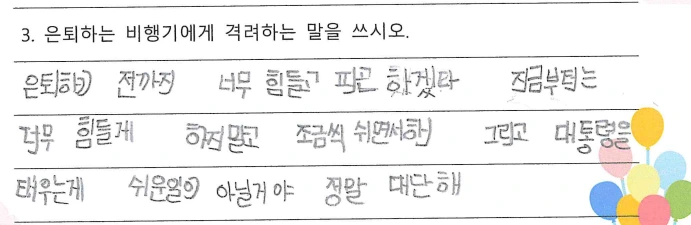 3. 은퇴하는 비행기에게 격려하는 말을 쓰시오.
은퇴하기 전까지 너무 힘들고 피곤 하겠다 지금부터는
너무 힘들게 하지말고 조금씩 쉬면서해 그리고 대통령을
태우는게 쉬운일이 아닐거야 정말 대단해